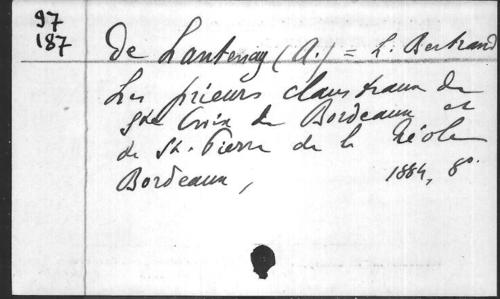 97
187
de Lantenay (A.) = L. Bertrand
Les prieurs claustraux de
Ste Croix de Bordeaux et
de St. Pierre de la Réole
Bordeaux, 1884, 8°.